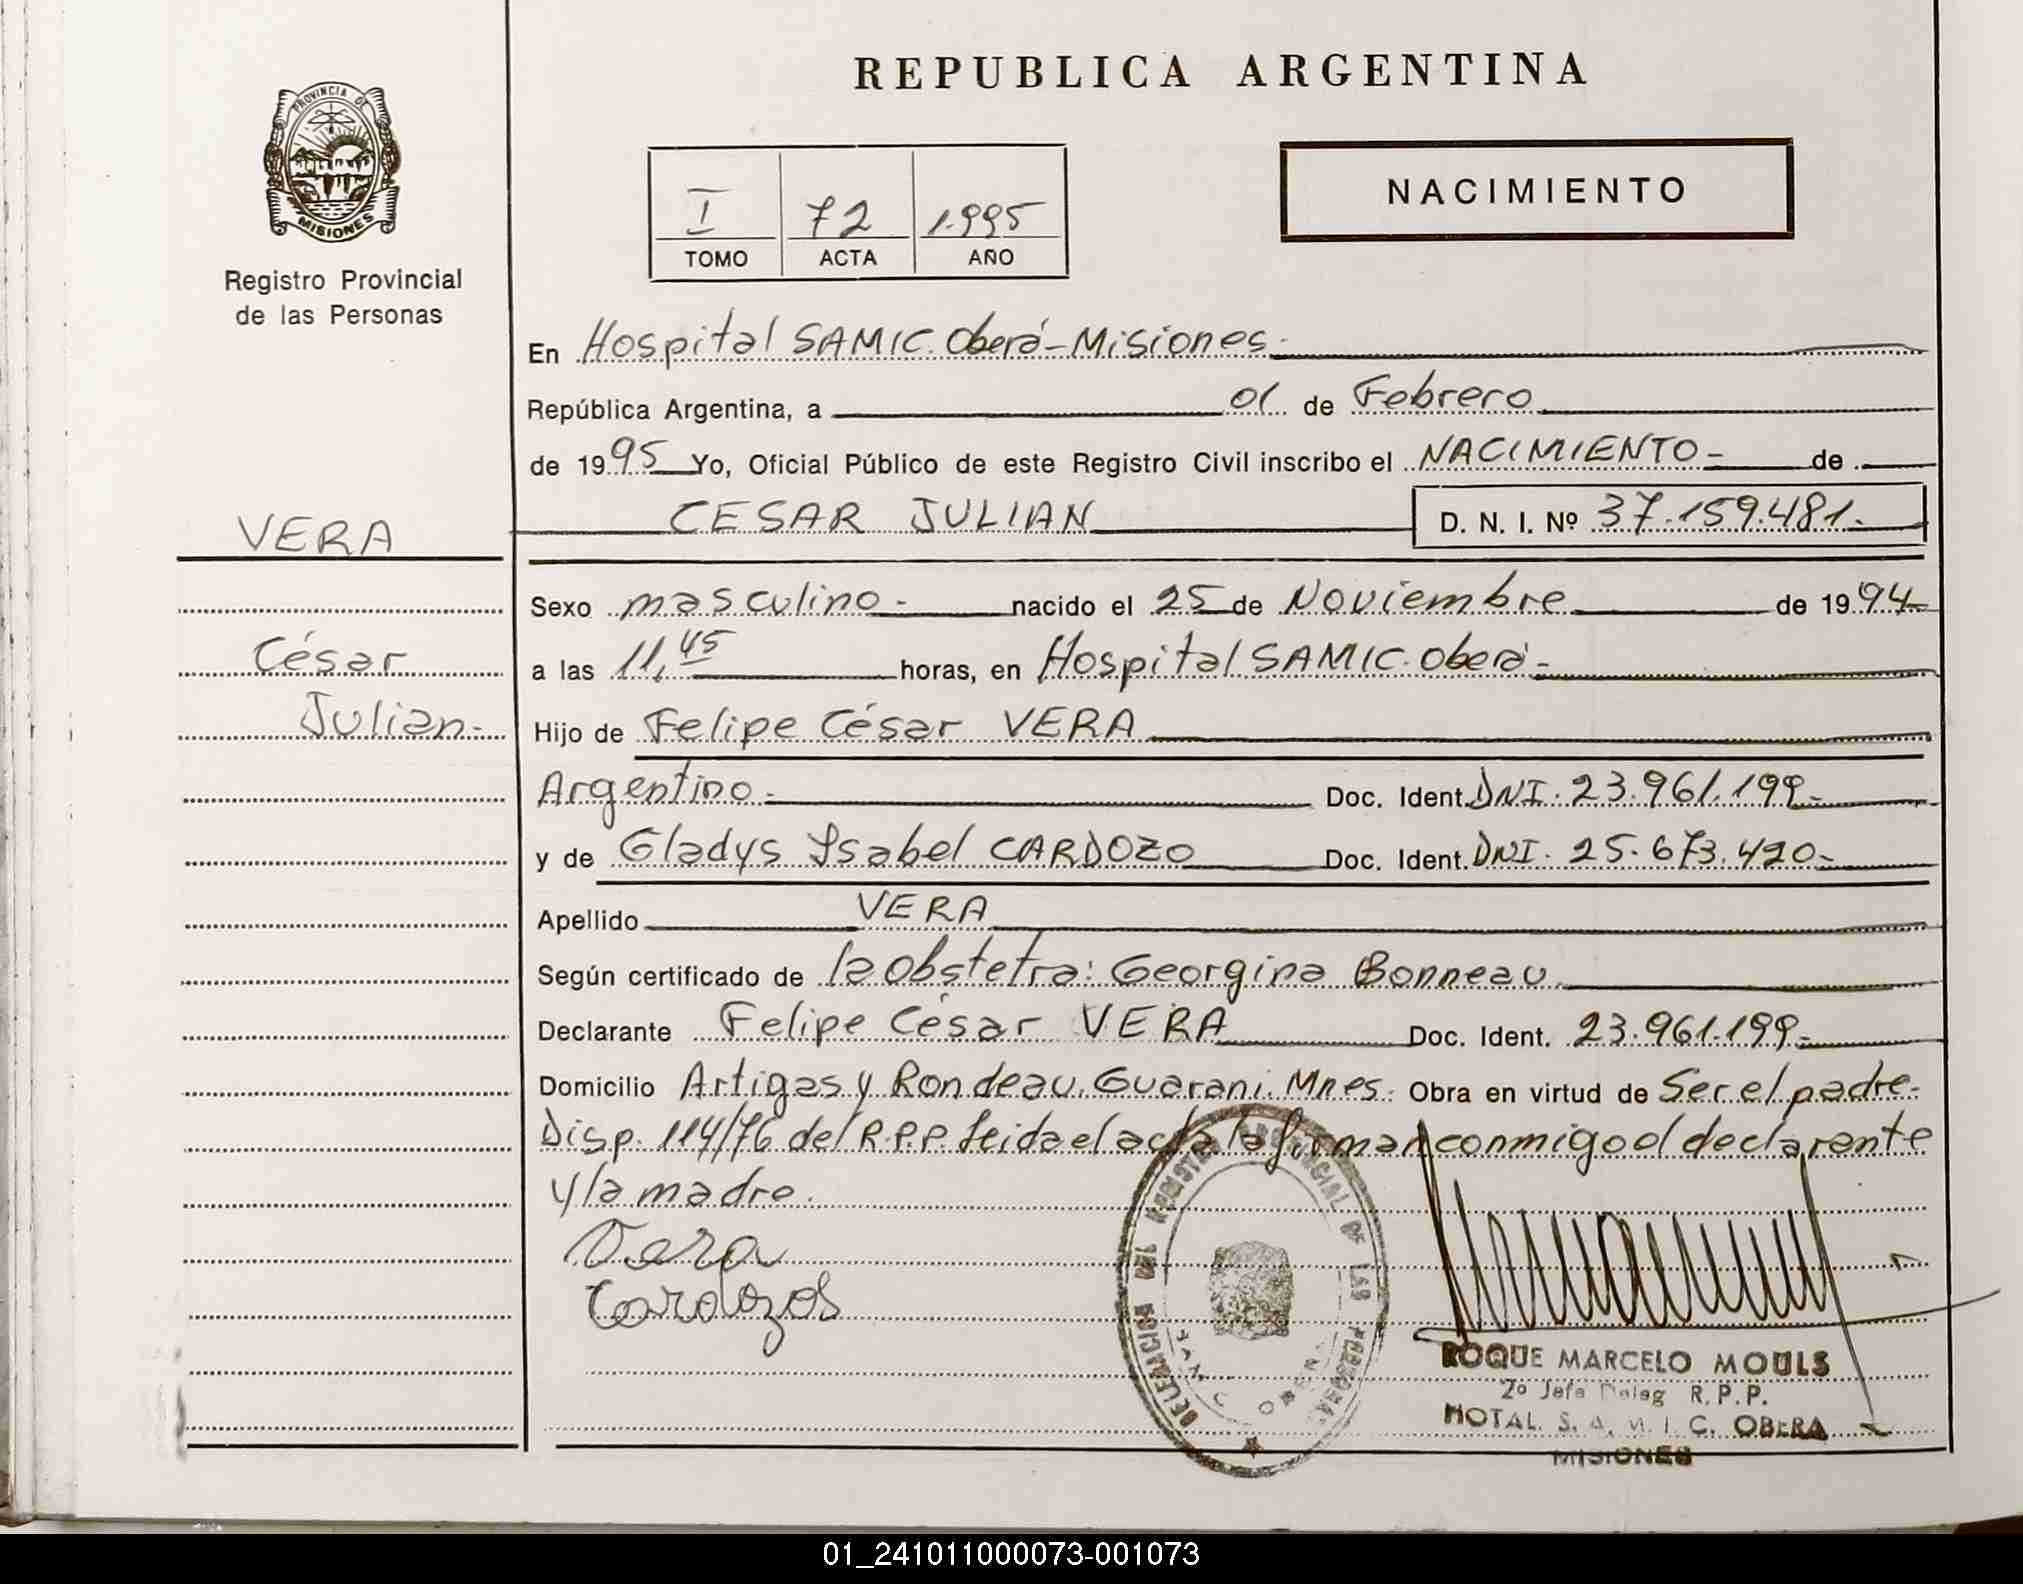 REPUBLICA ARGENTINA
PROVINCIA DE
MISIONES
Registro Provincial
de las Personas
I 72 1995
TOMO ACTA AÑO
NACIMIENTO
En Hospital SAMIC. Oberá-Misiones.
República Argentina, a 01 de Febrero
de 1995 Yo, Oficial Público de este Registro Civil inscribo el NACIMIENTO- de
CESAR JULIAN D. N. I. Nº 37.159.481.
VERA
Sexo masculino- nacido el 25 de Noviembre de 1994
César
a las 11,45 horas, en Hospital SAMIC. Oberá-
Julian-
Hijo de Felipe César VERA
Argentino- Doc. Ident. DNI. 23.961.199-
y de Gladys Isabel CARDOZO Doc. Ident. DNI. 25.673.420-
Apellido VERA
Según certificado de la Obstetra: Georgina Bonneau
Declarante Felipe César VERA Doc. Ident. 23.961.199-
Domicilio Artigas y Rondeau. Guarani. Mnes. Obra en virtud de Ser el padre-
Disp. 114/76 del R.P.P. leida el acta la firman conmigo el declarante
y la madre.
Vera
Cardozos
REGISTRO PROVINCIAL DE LAS PERSONAS
DELEGACION
ROQUE MARCELO MOULS
2º Jefe Deleg R.P.P.
HOTAL. S. A. M. I. C. OBERA
MISIONES
01_241011000073-001073